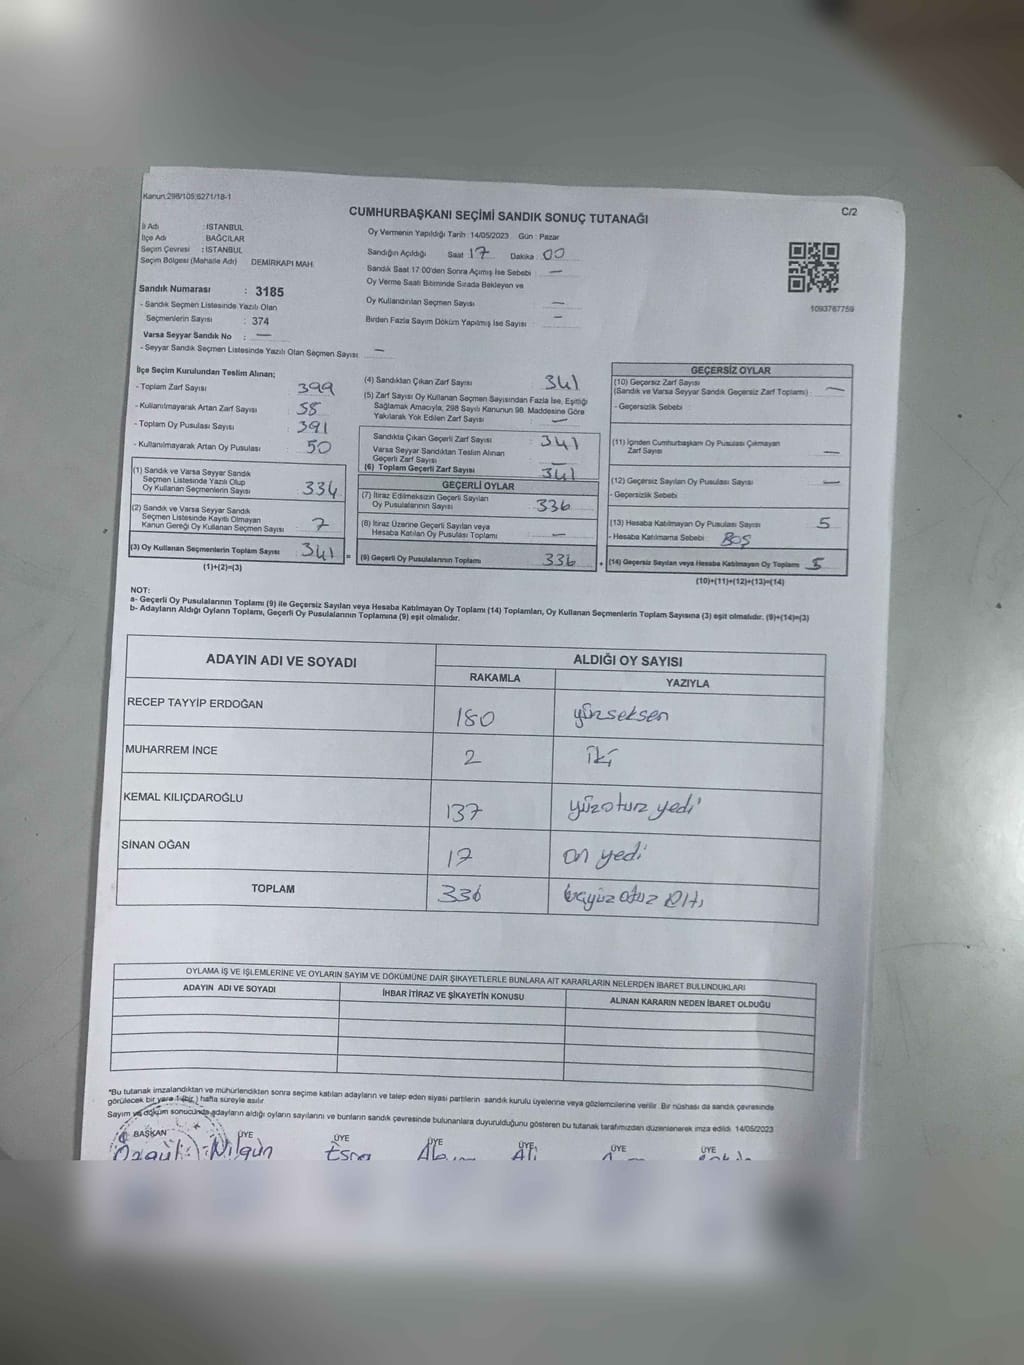 Kanun:298/105;6271/18-1
C/2
CUMHURBAŞKANI SEÇİMİ SANDIK SONUÇ TUTANAĞI
İl Adı : İSTANBUL
İlçe Adı BAĞCILAR
Seçim Çevresi : İSTANBUL
Seçim Bölgesi (Mahalle Adı) DEMİRKAPI MAH.
Sandık Numarası : 3185
- Sandık Seçmen Listesinde Yazılı Olan
Seçmenlerin Sayısı : 374
Varsa Seyyar Sandık No : —
- Seyyar Sandık Seçmen Listesinde Yazılı Olan Seçmen Sayısı —
Oy Vermenin Yapıldığı Tarih :14/05/2023 Gün : Pazar
Sandığın Açıldığı Saat 17 Dakika 00
Sandık Saat 17.00'den Sonra Açımış İse Sebebi : —
Oy Verme Saati Bitiminde Sırada Bekleyen ve
Oy Kullandırılan Seçmen Sayısı : —
Birden Fazla Sayım Döküm Yapılmış İse Sayısı : —
1093767759
İlçe Seçim Kurulundan Teslim Alınan;
- Toplam Zarf Sayısı : 399
- Kullanılmayarak Artan Zarf Sayısı : 58
- Toplam Oy Pusulası Sayısı : 391
- Kullanılmayarak Artan Oy Pusulası : 50
(1) Sandık ve Varsa Seyyar Sandık
Seçmen Listesinde Yazılı Olup
Oy Kullanan Seçmenlerin Sayısı : 334
(2) Sandık ve Varsa Seyyar Sandık
Seçmen Listesinde Kayıtlı Olmayan
Kanun Gereği Oy Kullanan Seçmen Sayısı : 7
(3) Oy Kullanan Seçmenlerin Toplam Sayısı : 341 =
(1)+(2)=(3)
(4) Sandıktan Çıkan Zarf Sayısı : 341
(5) Zarf Sayısı Oy Kullanan Seçmen Sayısından Fazla İse, Eşitliği
Sağlamak Amacıyla; 298 Sayılı Kanunun 98. Maddesine Göre
Yakılarak Yok Edilen Zarf Sayısı : —
Sandıkta Çıkan Geçerli Zarf Sayısı : 341
Varsa Seyyar Sandıktan Teslim Alınan
Geçerli Zarf Sayısı : —
(6) Toplam Geçerli Zarf Sayısı 341
GEÇERLİ OYLAR
(7) İtiraz Edilmeksizin Geçerli Sayılan
Oy Pusulalarının Sayısı : 336
(8) İtiraz Üzerine Geçerli Sayılan veya
Hesaba Katılan Oy Pusulası Toplamı : —
(9) Geçerli Oy Pusulalarının Toplamı 336 +
GEÇERSİZ OYLAR
(10) Geçersiz Zarf Sayısı
(Sandık ve Varsa Seyyar Sandık Geçersiz Zarf Toplamı) : —
- Geçersizlik Sebebi :
(11) İçinden Cumhurbaşkanı Oy Pusulası Çıkmayan
Zarf Sayısı : —
(12) Geçersiz Sayılan Oy Pusulası Sayısı : —
- Geçersizlik Sebebi :
(13) Hesaba Katılmayan Oy Pusulası Sayısı : 5
- Hesaba Katılmama Sebebi : BOŞ
(14) Geçersiz Sayılan veya Hesaba Katılmayan Oy Toplamı : 5
(10)+(11)+(12)+(13)=(14)
NOT:
a- Geçerli Oy Pusulalarının Toplamı (9) ile Geçersiz Sayılan veya Hesaba Katılmayan Oy Toplamı (14) Toplamları, Oy Kullanan Seçmenlerin Toplam Sayısına (3) eşit olmalıdır. (9)+(14)=(3)
b- Adayların Aldığı Oyların Toplamı, Geçerli Oy Pusulalarının Toplamına (9) eşit olmalıdır.
ADAYIN ADI VE SOYADI
ALDIĞI OY SAYISI
RAKAMLA YAZIYLA
RECEP TAYYİP ERDOĞAN 180 yüzseksen
MUHARREM İNCE 2 İki
KEMAL KILIÇDAROĞLU 137 yüzotuz yedi
SİNAN OĞAN 17 on yedi
TOPLAM 336 üçyüz otuz altı
OYLAMA İŞ VE İŞLEMLERİNE VE OYLARIN SAYIM VE DÖKÜMÜNE DAİR ŞİKAYETLERLE BUNLARA AİT KARARLARIN NELERDEN İBARET BULUNDUKLARI
ADAYIN ADI VE SOYADI İHBAR İTİRAZ VE ŞİKAYETİN KONUSU ALINAN KARARIN NEDEN İBARET OLDUĞU
*Bu tutanak imzalandıktan ve mühürlendikten sonra seçime katılan adayların ve talep eden siyasi partilerin sandık kurulu üyelerine veya gözlemcilerine verilir. Bir nüshası da sandık çevresinde
görülecek bir yere 1 (bir ) hafta süreyle asılır.
Sayım ve döküm sonucunda adayların aldığı oyların sayılarını ve bunların sandık çevresinde bulunanlara duyurulduğunu gösteren bu tutanak tarafımızdan düzenlenerek imza edildi. 14/05/2023
BAŞKAN ÜYE ÜYE ÜYE ÜYE ÜYE ÜYE
Nilgün Esra